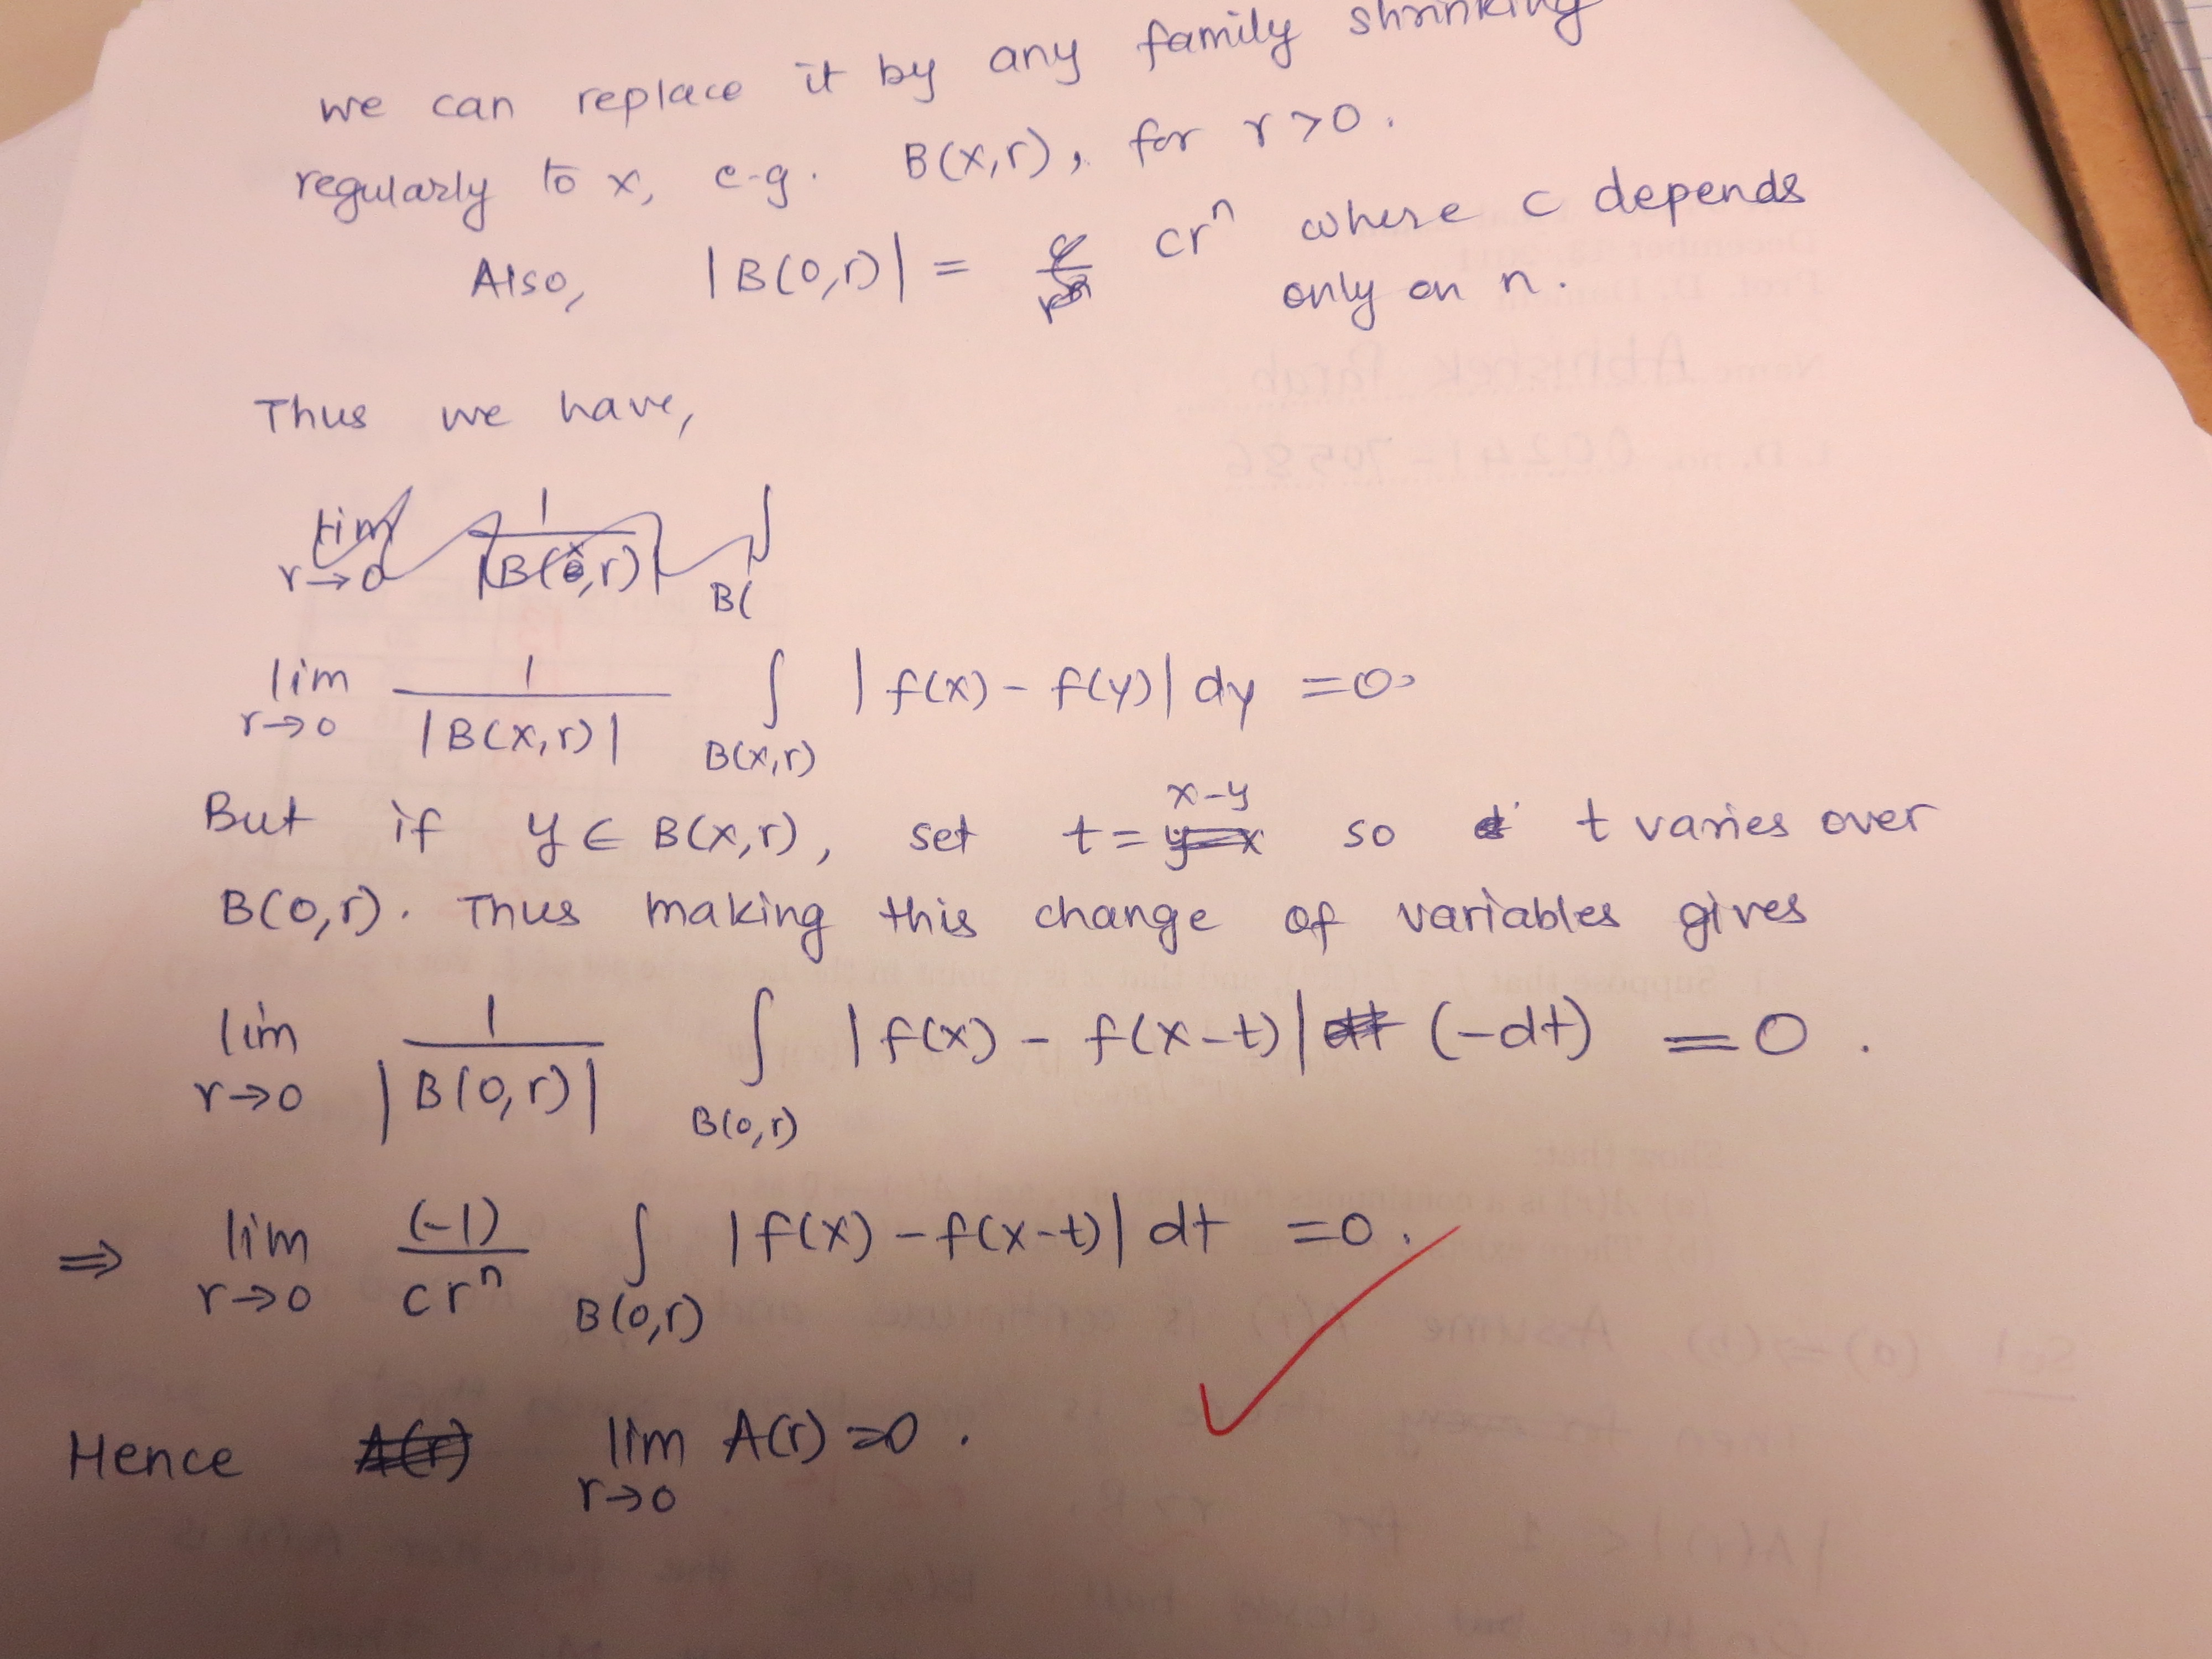 we can replace it by any family shrinking
regularly to x, e.g. B(x,r), for r>0.
Also, |B(0,r)| = cr^n where c depends
only on n.
Thus we have,
lim r→0 1/|B(x,r)| ∫ B(
lim r→0 1/|B(x,r)| ∫_{B(x,r)} |f(x) - f(y)| dy = 0.
But if y ∈ B(x,r), set t = y-x x-y so t varies over
B(0,r). Thus making this change of variables gives
lim r→0 1/|B(0,r)| ∫_{B(0,r)} |f(x) - f(x-t)| dt (-dt) = 0.
⇒ lim r→0 (-1)/cr^n ∫_{B(0,r)} |f(x) - f(x-t)| dt = 0.
Hence A(r) lim r→0 A(r) = 0.